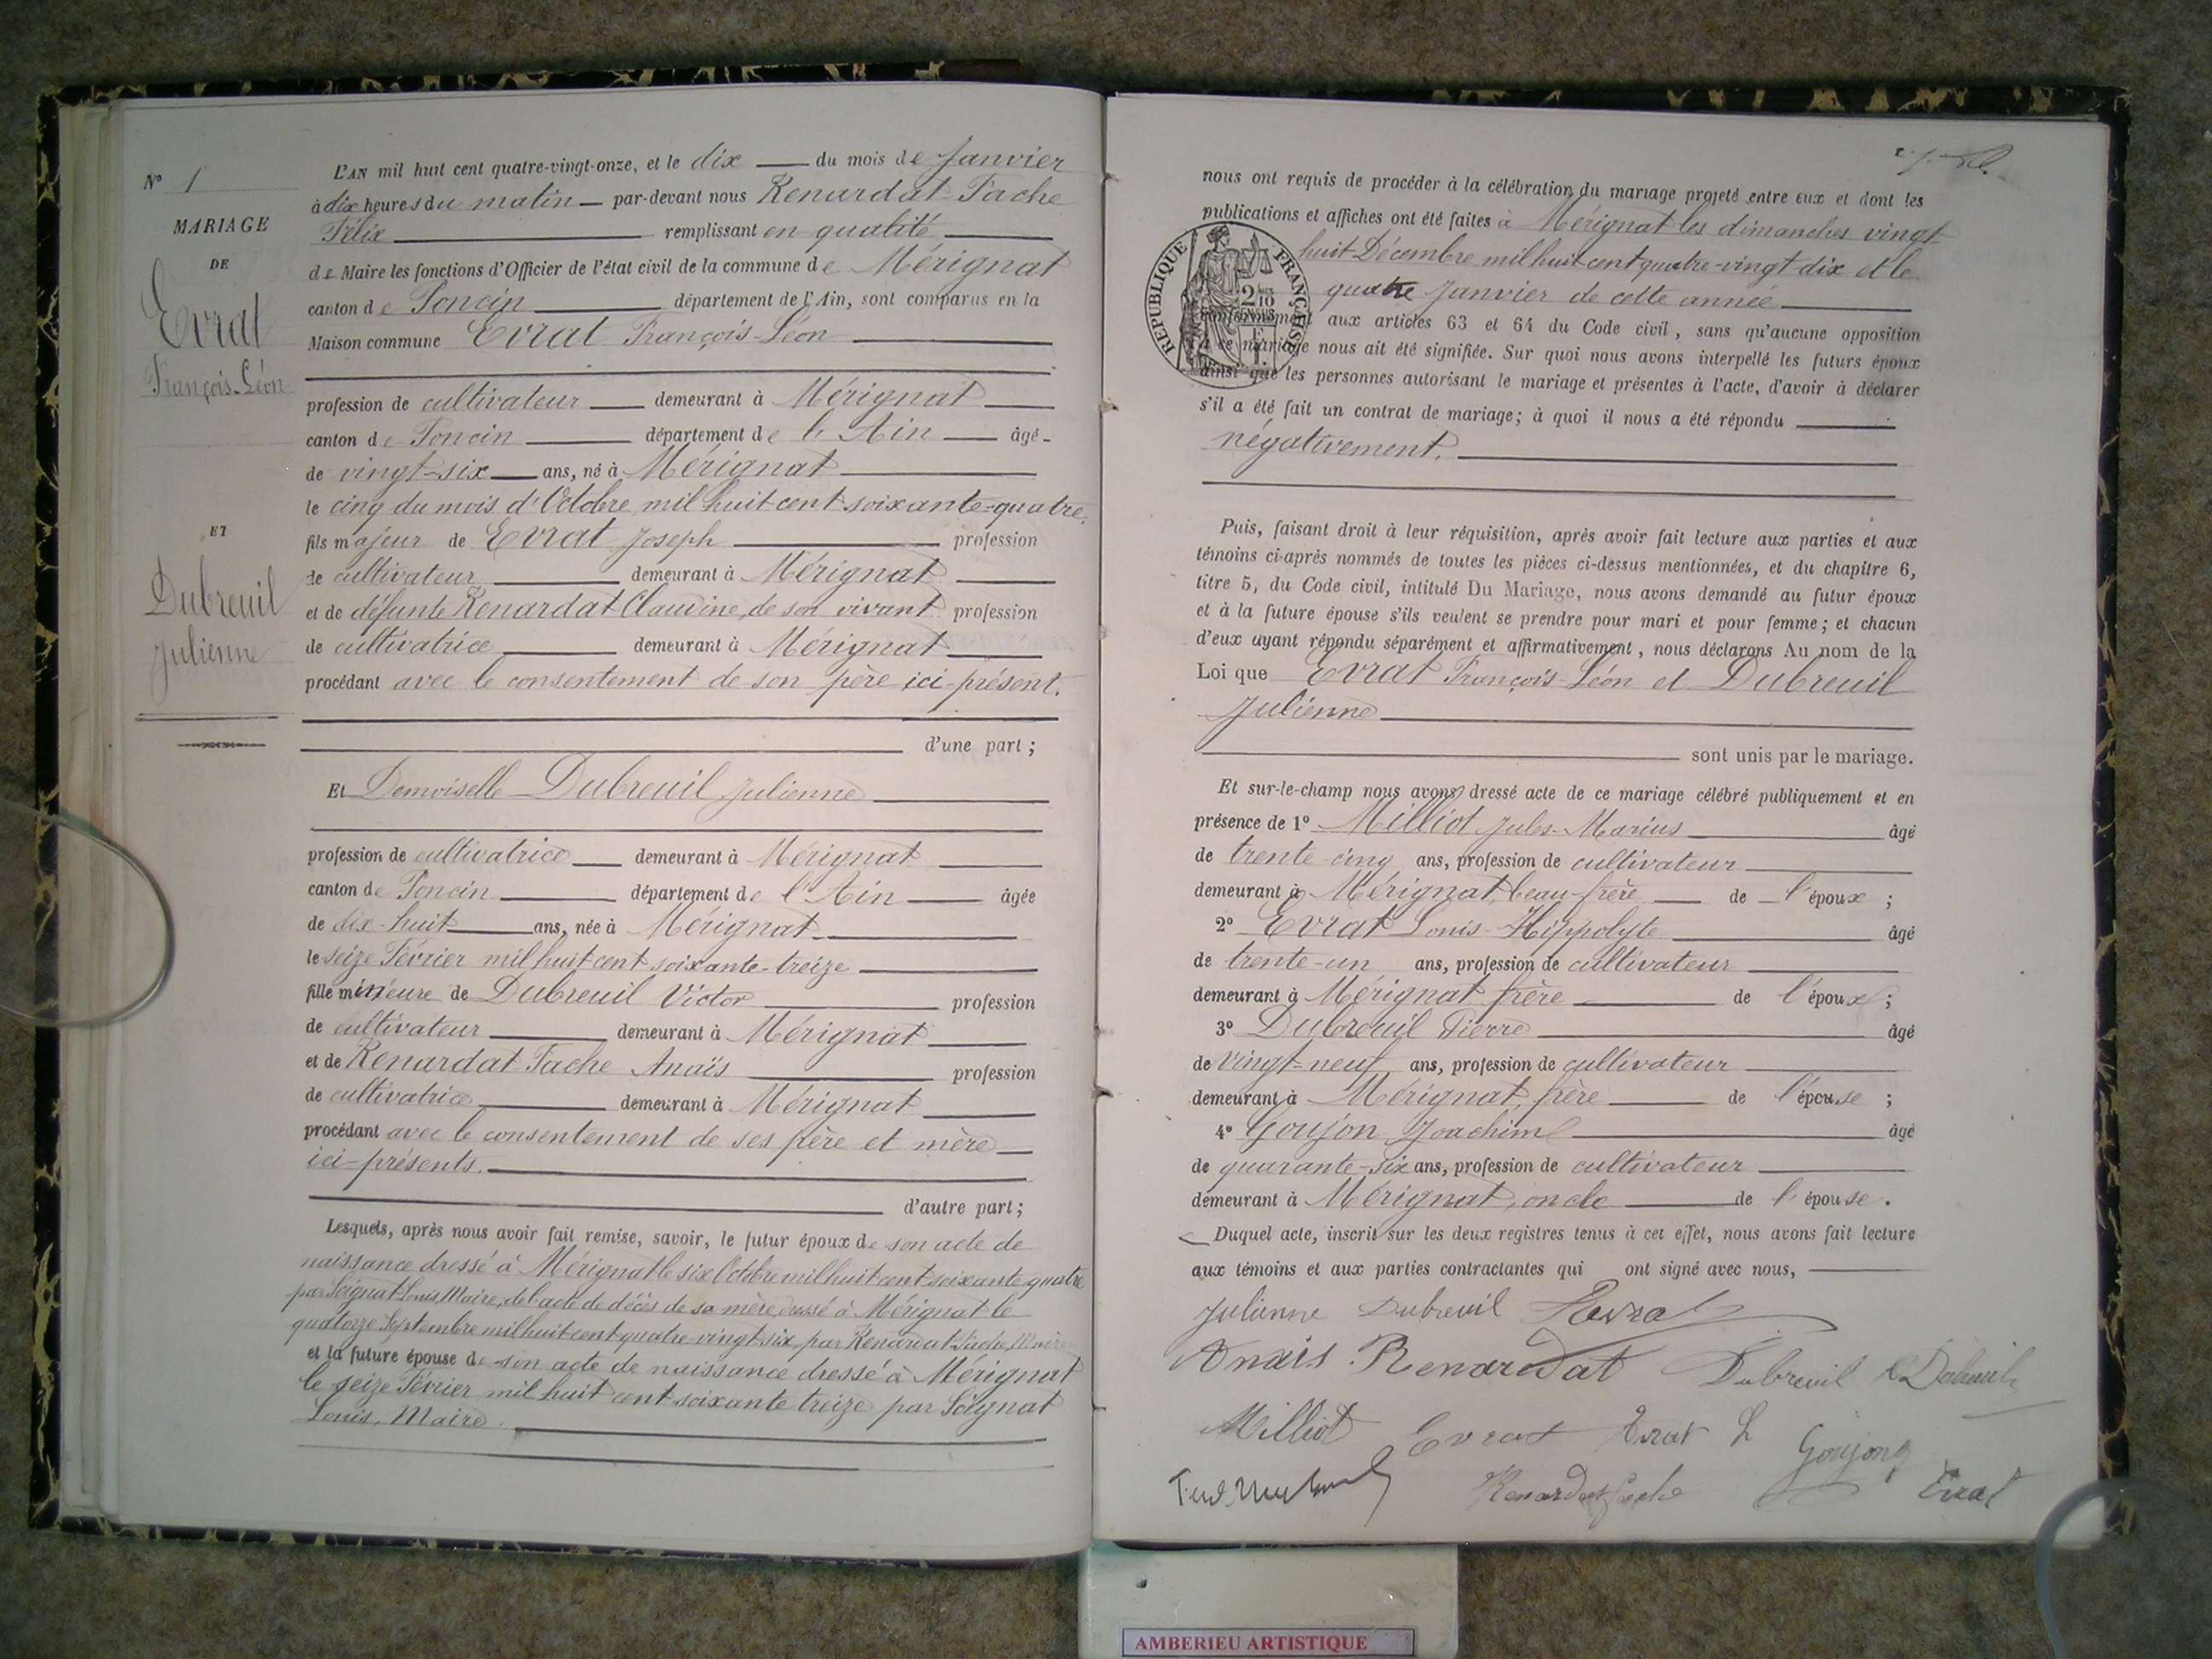 N° 1
MARIAGE
DE
Evrat
François-Léon
ET
Dubreuil
Julienne
L'AN mil huit cent quatre-vingt-onze, et le dix du mois de Janvier
à dix heures du matin par-devant nous Renardat-Fache
Félix remplissant en qualité
de Maire les fonctions d'Officier de l'état civil de la commune de Mérignat
canton de Poncin département de l'Ain, sont comparus en la
Maison commune Evrat François-Léon
profession de cultivateur demeurant à Mérignat
canton de Poncin département de l'Ain âgé
de vingt-six ans, né à Mérignat
le cinq du mois d'Octobre mil huit cent soixante-quatre,
fils majeur de Evrat Joseph profession
de cultivateur demeurant à Mérignat
et de défunte Renardat Claudine, de son vivant profession
de cultivatrice demeurant à Mérignat
procédant avec le consentement de son père ici-présent.
d'une part ;
Et Demoiselle Dubreuil Julienne
profession de cultivatrice demeurant à Mérignat
canton de Poncin département de l'Ain âgée
de dix-huit ans, née à Mérignat
le seize Février mil huit cent soixante-treize
fille mineure de Dubreuil Victor profession
de cultivateur demeurant à Mérignat
et de Renardat Fache Anaïs profession
de cultivatrice demeurant à Mérignat
procédant avec le consentement de ses père et mère
ici-présents.
d'autre part ;
Lesquels, après nous avoir fait remise, savoir, le futur époux de son acte de
naissance dressé à Mérignat le six Octobre mil huit cent soixante quatre
par Soignat Louis, Maire, de l'acte de décès de sa mère, dressé à Mérignat le
quatorze Septembre mil huit cent quatre-vingt-six, par Renardat-Fache, Maire
et la future épouse de son acte de naissance dressé à Mérignat
le seize Février mil huit cent soixante treize par Soignat
Louis, Maire.
nous ont requis de procéder à la célébration du mariage projeté entre eux et dont les
publications et affiches ont été faites à Mérignat les dimanches vingt-
huit Décembre mil huit cent quatre-vingt-dix et le
quatre Janvier de cette année
REPUBLIQUE FRANÇAISE
2/10 EN SUS
conformément aux articles 63 et 64 du Code civil, sans qu'aucune opposition
à ce mariage nous ait été signifiée. Sur quoi nous avons interpellé les futurs époux
ainsi que les personnes autorisant le mariage et présentes à l'acte, d'avoir à déclarer
s'il a été fait un contrat de mariage; à quoi il nous a été répondu
négativement.
Puis, faisant droit à leur réquisition, après avoir fait lecture aux parties et aux
témoins ci-après nommés de toutes les pièces ci-dessus mentionnées, et du chapitre 6,
titre 5, du Code civil, intitulé Du Mariage, nous avons demandé au futur époux
et à la future épouse s'ils veulent se prendre pour mari et pour femme; et chacun
d'eux ayant répondu séparément et affirmativement, nous déclarons Au nom de la
Loi que Evrat François-Léon et Dubreuil
Julienne
sont unis par le mariage.
Et sur-le-champ nous avons dressé acte de ce mariage célébré publiquement et en
présence de 1° Milliot Jules-Marius âgé
de trente-cinq ans, profession de cultivateur
demeurant à Mérignat, beau-frère de l'époux ;
2° Evrat Louis-Hippolyte âgé
de trente-un ans, profession de cultivateur
demeurant à Mérignat frère de l'époux ;
3° Dubreuil Pierre âgé
de vingt-neuf ans, profession de cultivateur
demeurant à Mérignat, frère de l'épouse ;
4° Goujon Joachim âgé
de quarante-six ans, profession de cultivateur
demeurant à Mérignat, oncle de l'épouse.
Duquel acte, inscrit sur les deux registres tenus à cet effet, nous avons fait lecture
aux témoins et aux parties contractantes qui ont signé avec nous,
Julienne Dubreuil Evrat
Anaïs Renardat Dubreuil Dubreuil
Milliot Evrat Evrat L Goujon
Renardat fache Evrat
AMBERIEU ARTISTIQUE